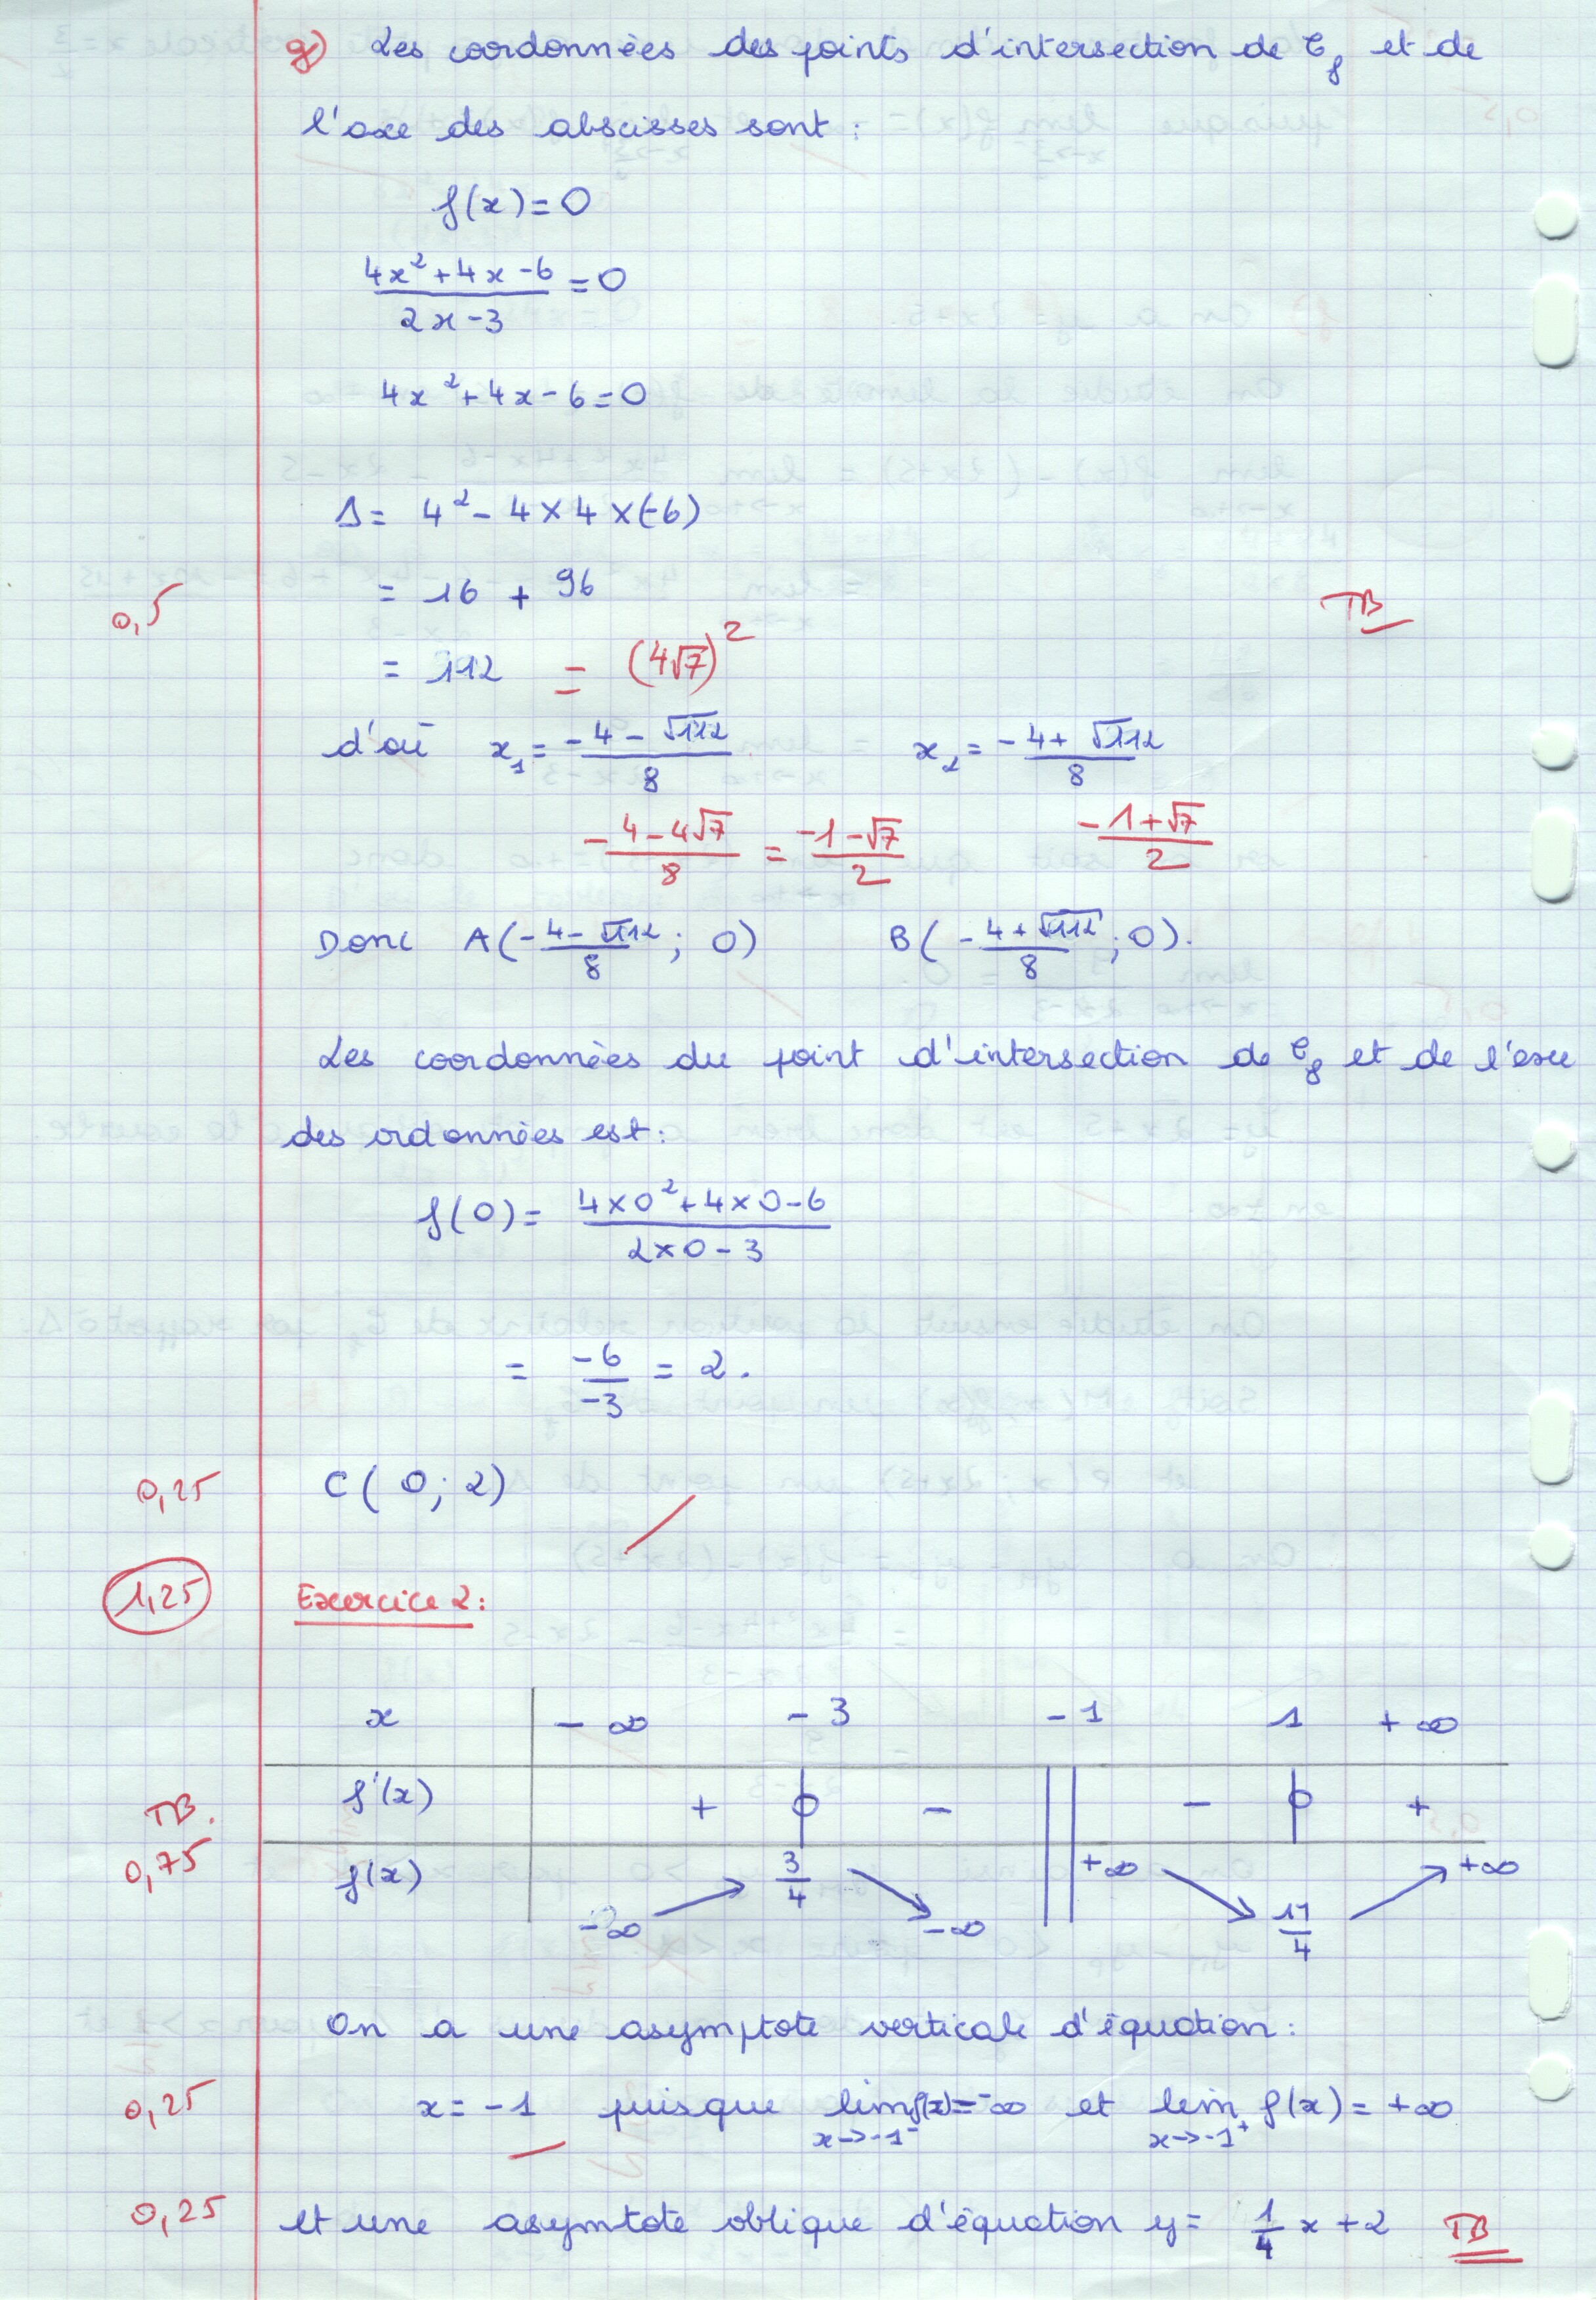 g) Les coordonnées des points d'intersection de Cf et de
l'axe des abscisses sont :
f(x) = 0
(4x² + 4x - 6)/(2x - 3) = 0
4x² + 4x - 6 = 0
Δ = 4² - 4 × 4 × (-6)
= 16 + 96
0,5
TB
= 112 = (4√7)²
d'où x₁ = (-4 - √112)/8 x₂ = (-4 + √112)/8
(-4 - 4√7)/8 = (-1 - √7)/2 (-1 + √7)/2
Donc A(-4 - √112/8 ; 0) B(-4 + √112/8 ; 0).
Les coordonnées du point d'intersection de Cf et de l'axe
des ordonnées est :
f(0) = (4 × 0² + 4 × 0 - 6)/(2 × 0 - 3)
= -6/-3 = 2.
0,25 C( 0 ; 2)
1,25 Exercice 2 :
x -∞ -3 -1 1 +∞
TB. f'(x) + 0 - || - 0 +
0,75 f(x) -∞ ↗ 3/4 ↘ -∞ || +∞ ↘ 17/4 ↗ +∞
On a une asymptote verticale d'équation :
0,25 x = -1 puisque lim f(x) = -∞ et lim f(x) = +∞
x→-1⁻ x→-1⁺
0,25 et une asymtote oblique d'équation y = 1/4 x + 2 TB